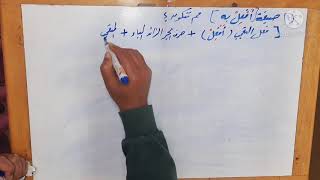 صيغة [أفعِل به] مم تتكون؟
فعل التعجب (أفعِل) + حرف الجر الزائد الباء + المتعجب